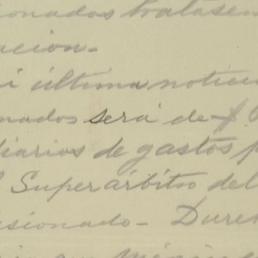 ionados tratasen
ación.-
i última notici
nados será de $
diarios de gastos p
l Superárbitro del
esionado - Dure